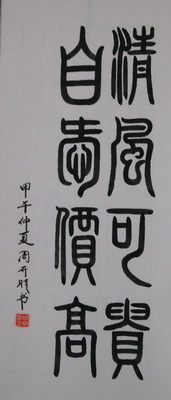 清風可貴
自愛價高
甲午仲夏周开胜书